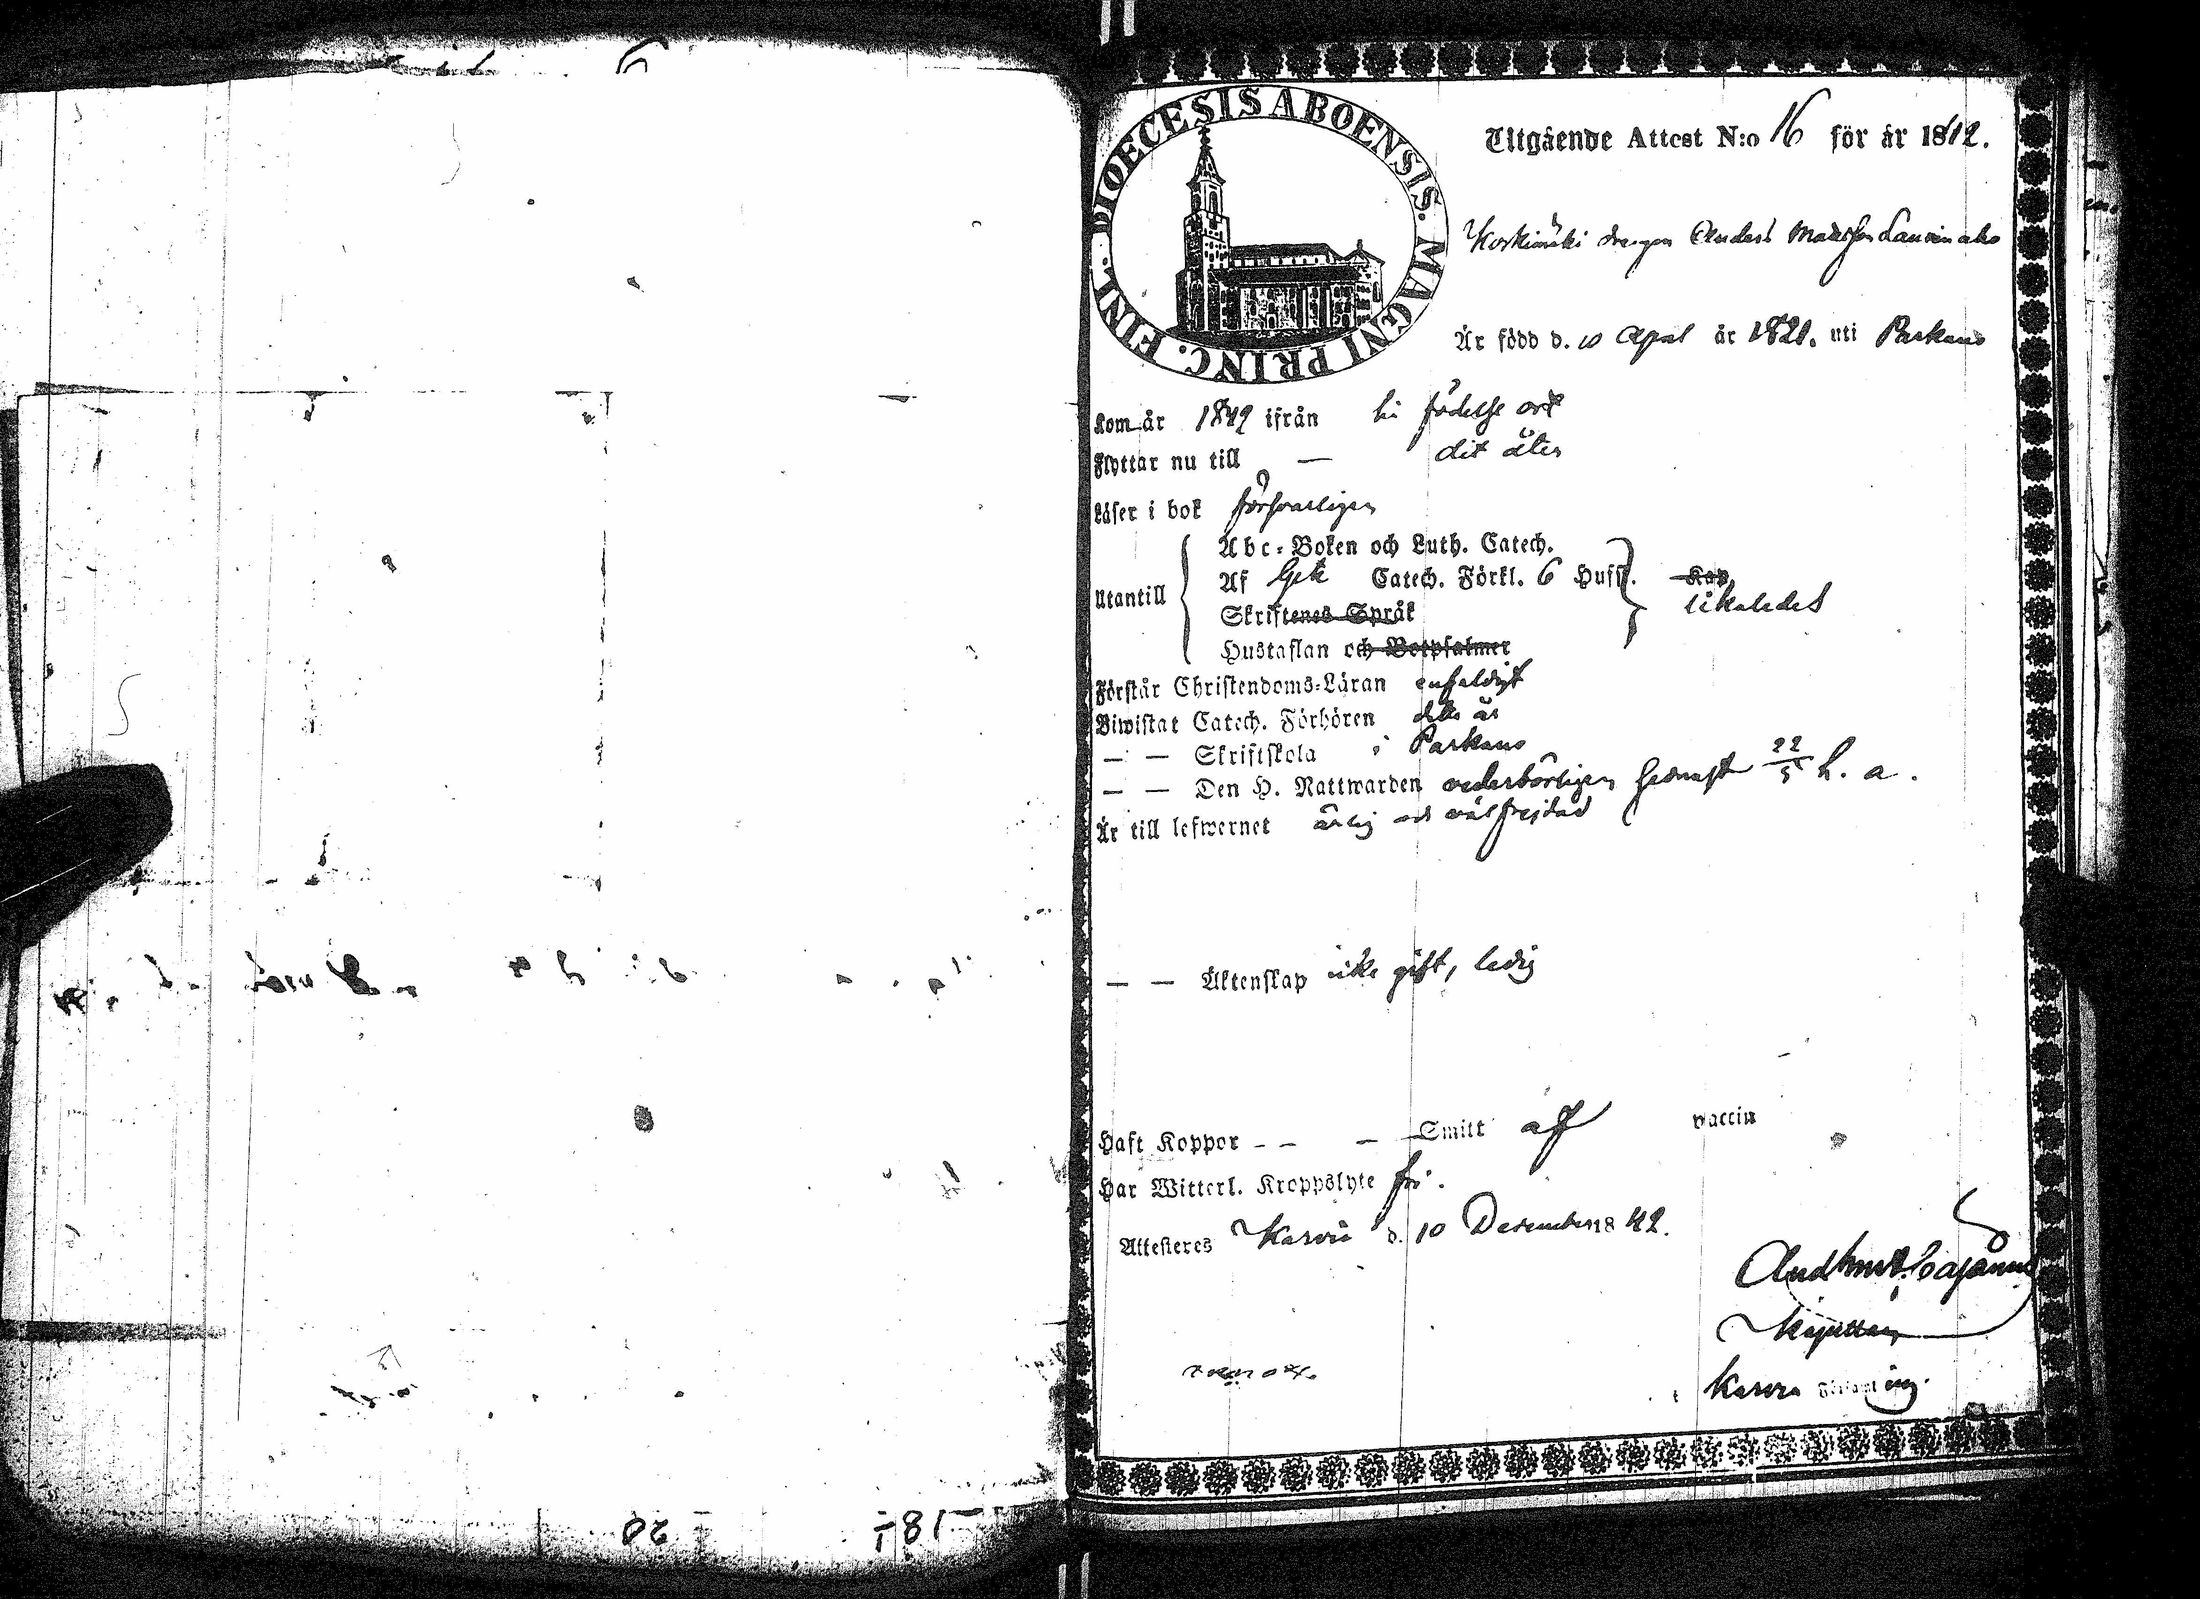 DIOECESIS ABOENSIS. MAGNI PRINC. FINL.
Utgående Attest N:o 16 för år 1842.
Koskimäki drengen Anders Mattsson
Är född d. 10 April år 1821. uti Parkano
Kom år 1842 ifrån födelse ort
Flyttar nu till — dit åter
Läser i bok försvarligen
Utantill
Abc-Boken och Luth. Catech.
Af Catech. Förkl. 6 Hufst. Kap.
likaledes
Skriftenes Språk
Hustaflan och Botpsalmer
Förstår Christendoms-Läran enfaldigt
Biwistat Catech. Förhören detta år
— — Skriftskola i Parkano
— — Den H. Nattwarden vederbörligen 22/5 h. a.
Är till lefwernet ärlig och välfrejdad
— — Äktenskap icke gift, ledig
Haft Koppor - - — — Smitt af vaccin
Har Witterl. Kroppslyte fri.
Attesteres Karvia d. 10 December 1842.
Cajanus
Karvia Församling.
20
181